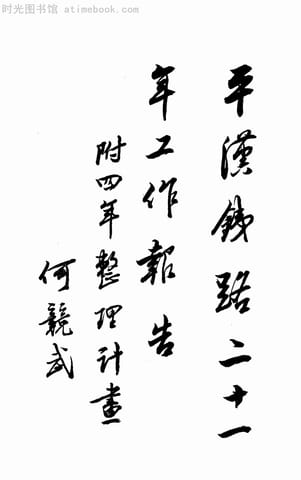 时光图书馆 atimebook.com
平漢鉄路二十一
年工作報告
附四年整理計畫
何競武